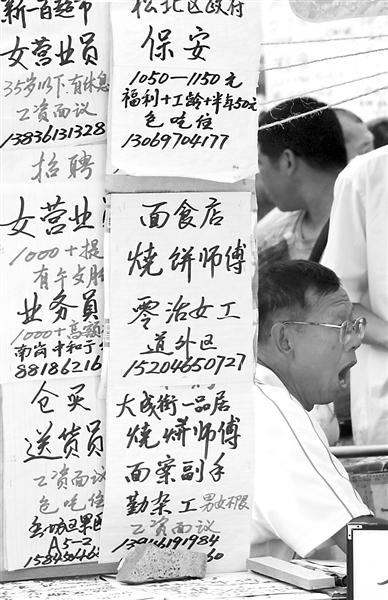 新一百超市
女营业员
35岁以下.有休息
工资面议
13836131328
招聘
女营业
1000+提
有午
业务员
1000+高额
南岗 中和
88186216
仓买
送货员
工资面议
包吃住
A5-2
松北区政府
保安
1050—1150元
福利+工龄+半年50元
包吃住
13069704177
面食店
烧饼师傅
零活女工
道外区
15204650727
大成街一品居
烧饼师傅
面案副手
勤杂工 男女不限
工资面议